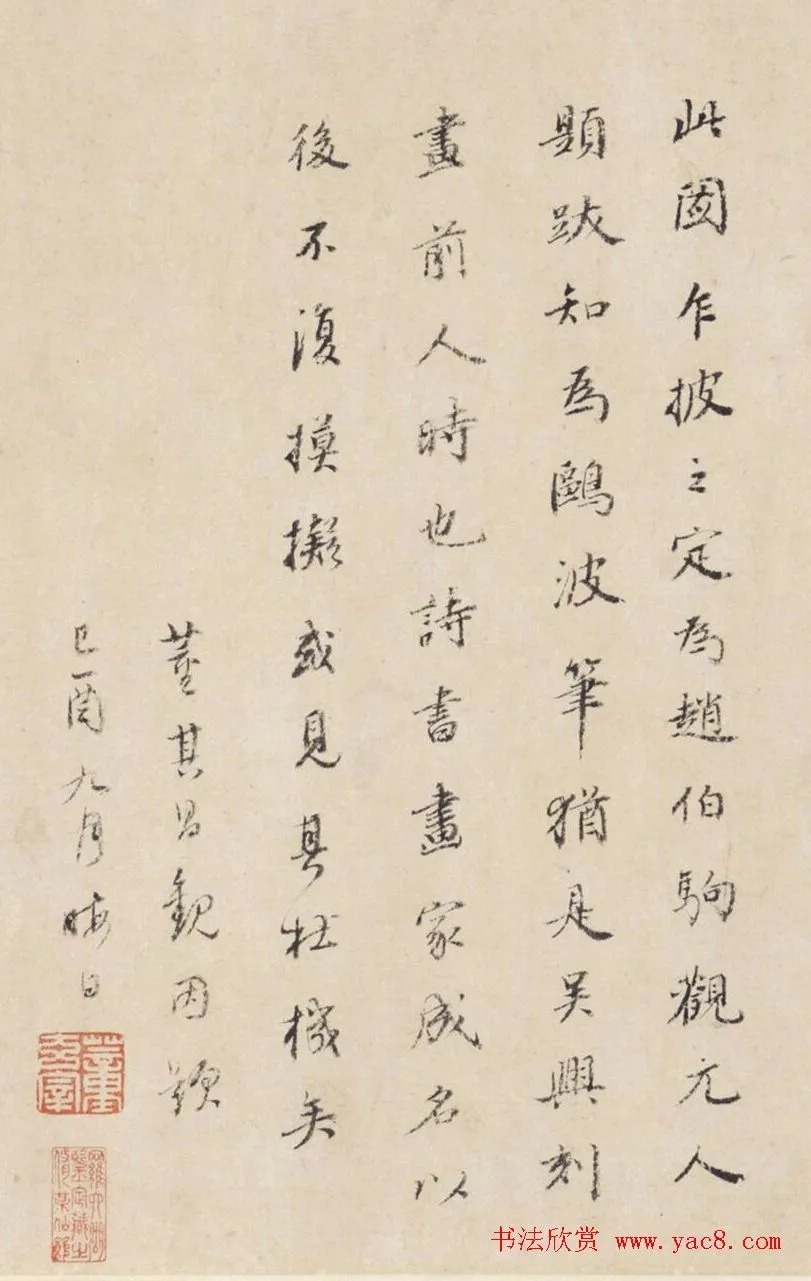 此圖乍披之定為趙伯駒觀元人
題跋知為鷗波筆猶是吳興刻
畫前人時也詩書畫家成名以
後不復摸擬或見其杜機矣
董其昌觀因題
己酉九月晦日
书法欣赏 www.yac8.com